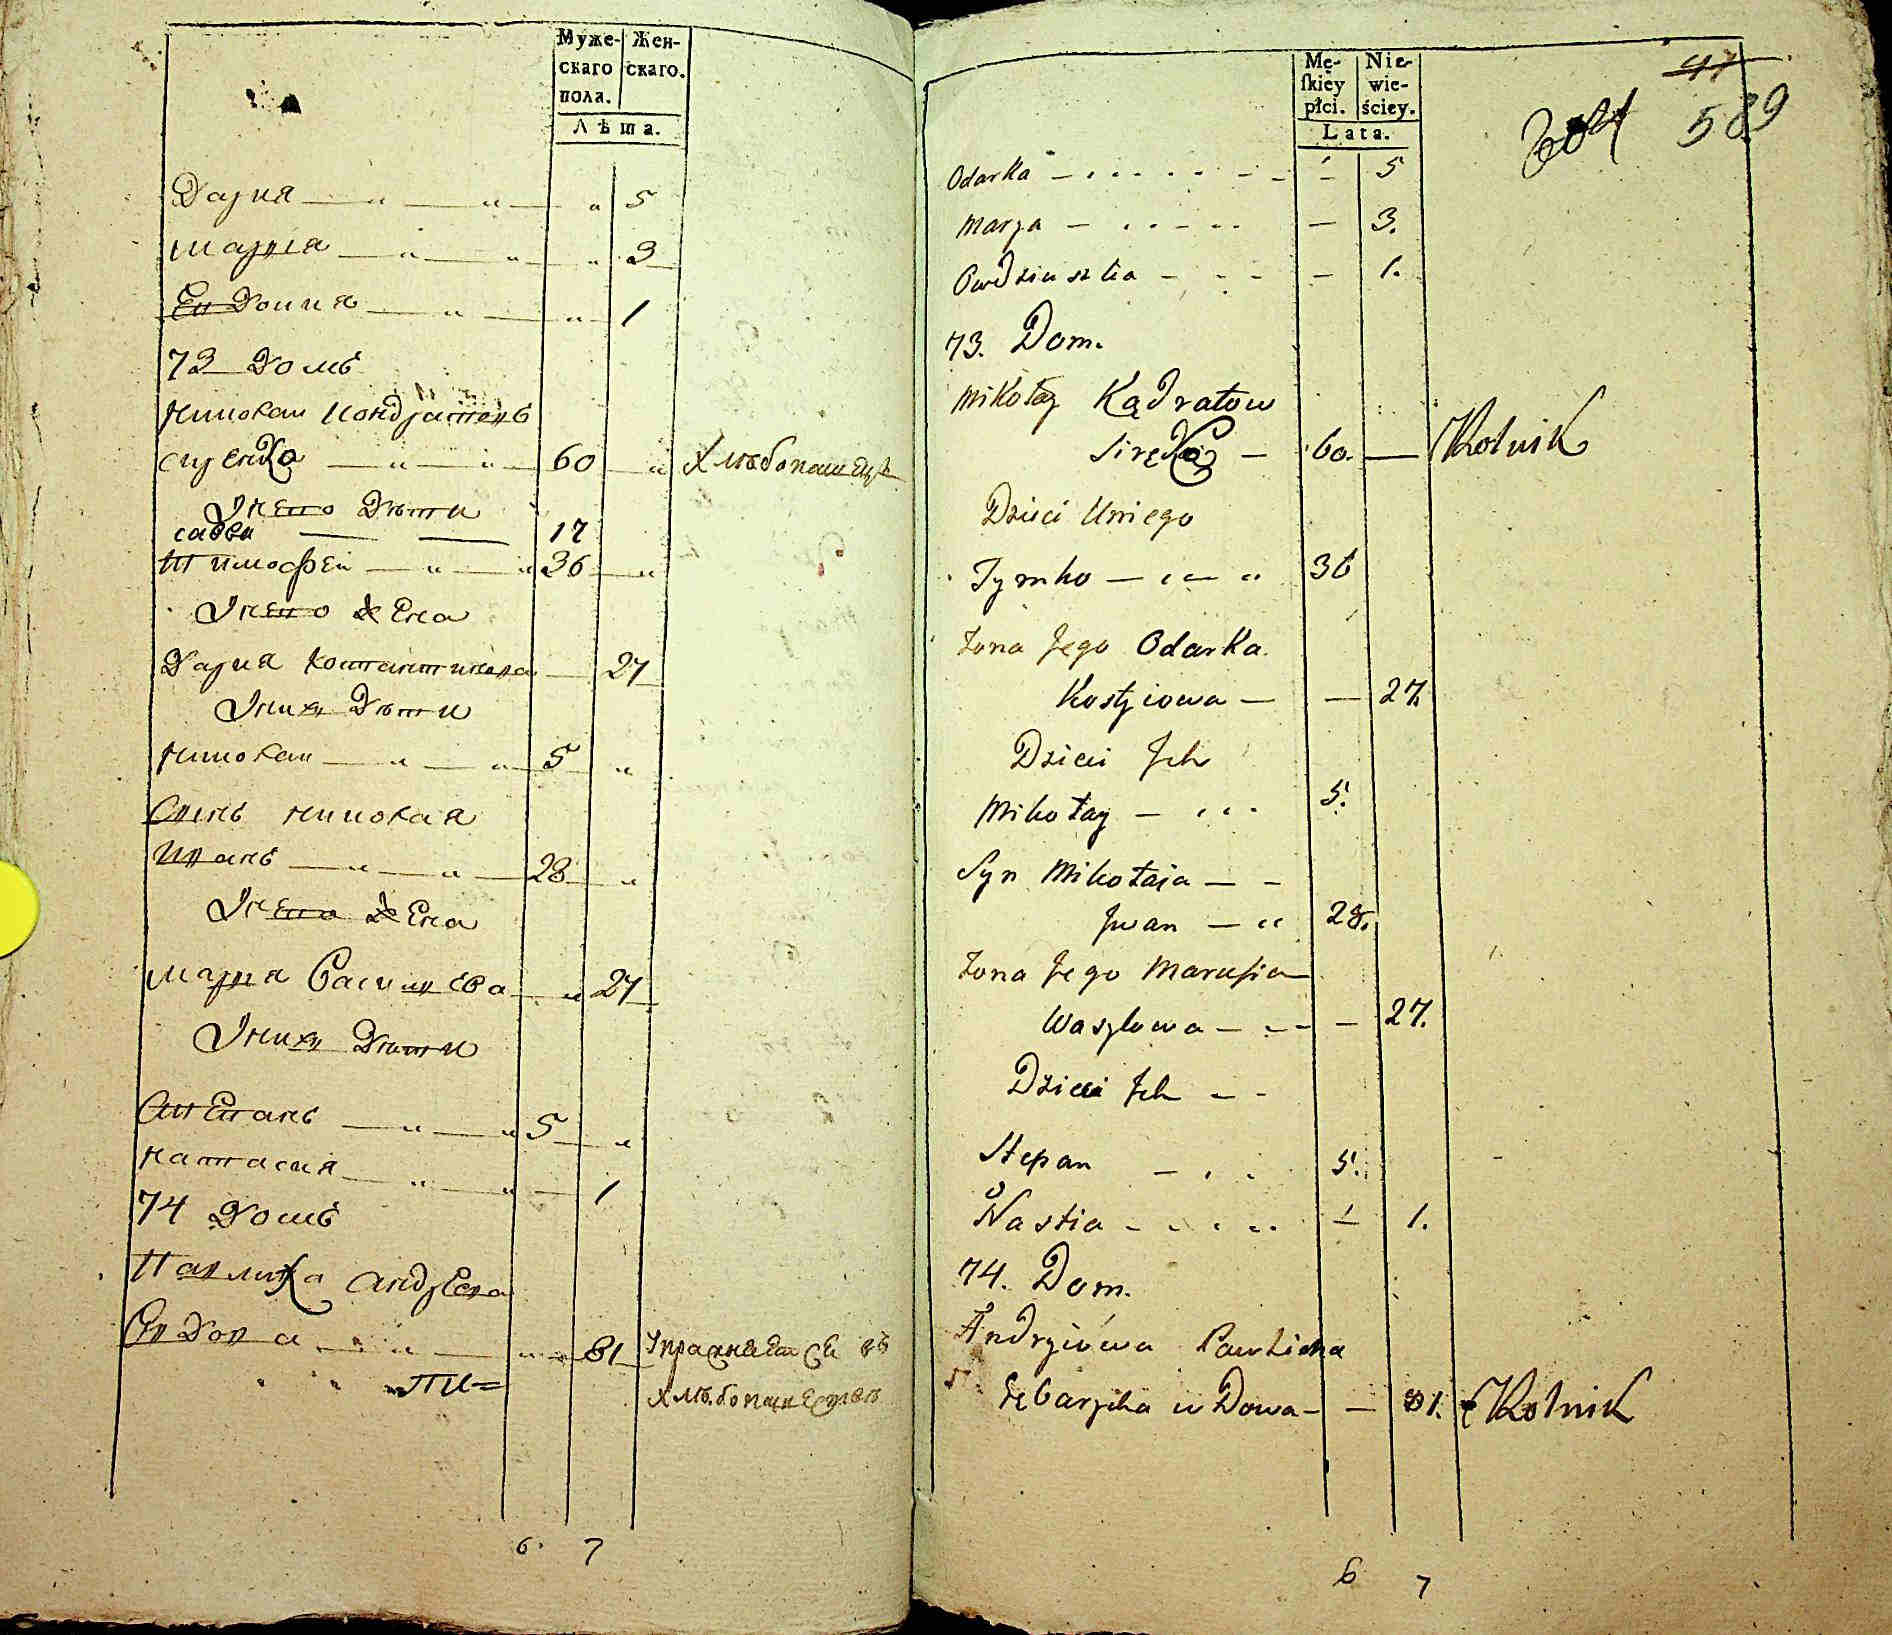 Муже-
скаго
пола.
Жен-
скаго.
Лѣта.
Дария 5
Мария 3
Евдокия 1
73 Домъ
Николай Кондратовъ
Сиренко 60 Хлѣбопашецъ
У него Дѣти
Савва 17
Тимофей 36
У него Жена
Дария Костантинова 27
У нихъ Дѣти
Николай 5
Сынъ Николая
Иванъ 28
У него Жена
Мария Васильева 27
У нихъ Дѣти
Степанъ 5
Настасия 1
74 Домъ
Павлиха Андреева
Вдова 81 Упражняется въ
хлѣбопашествѣ
6. 7
Mę-
ſkiey
płci.
Nie-
wie-
ściey.
Lata.
47
589
Odarka 5
Marya 3.
1.
73. Dom.
Mikołay Kądratow
Siręko 60. Rolnik
Dzieci Uniego
Tymko 36
Żona Jego Odarka
Kostiowa 27
Dzieci Jch
Mikołay 5.
Syn Mikołaia
Jwan 28.
Żona Jego Marusia
Wasylowa 27.
Dzieci Jch
Stepan 5.
Nastia 1.
74. Dom.
Andryiowa Pawlicha
w Dowa 81. Rolnik
6 7